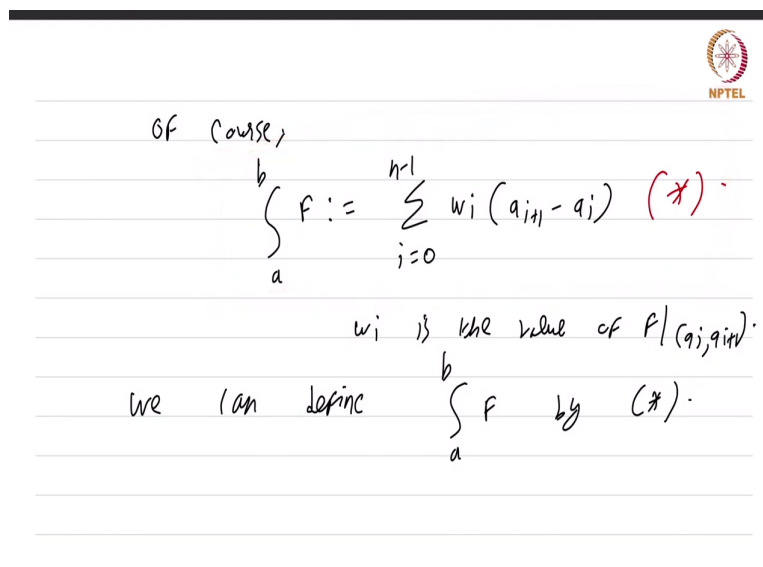 NPTEL
OF Course,
∫_a^b F := ∑_{i=0}^{n-1} wi (a_{i+1} - a_i) (*).
wi is the value of F|_{(a_i, a_{i+1})}.
we can define ∫_a^b F by (*).